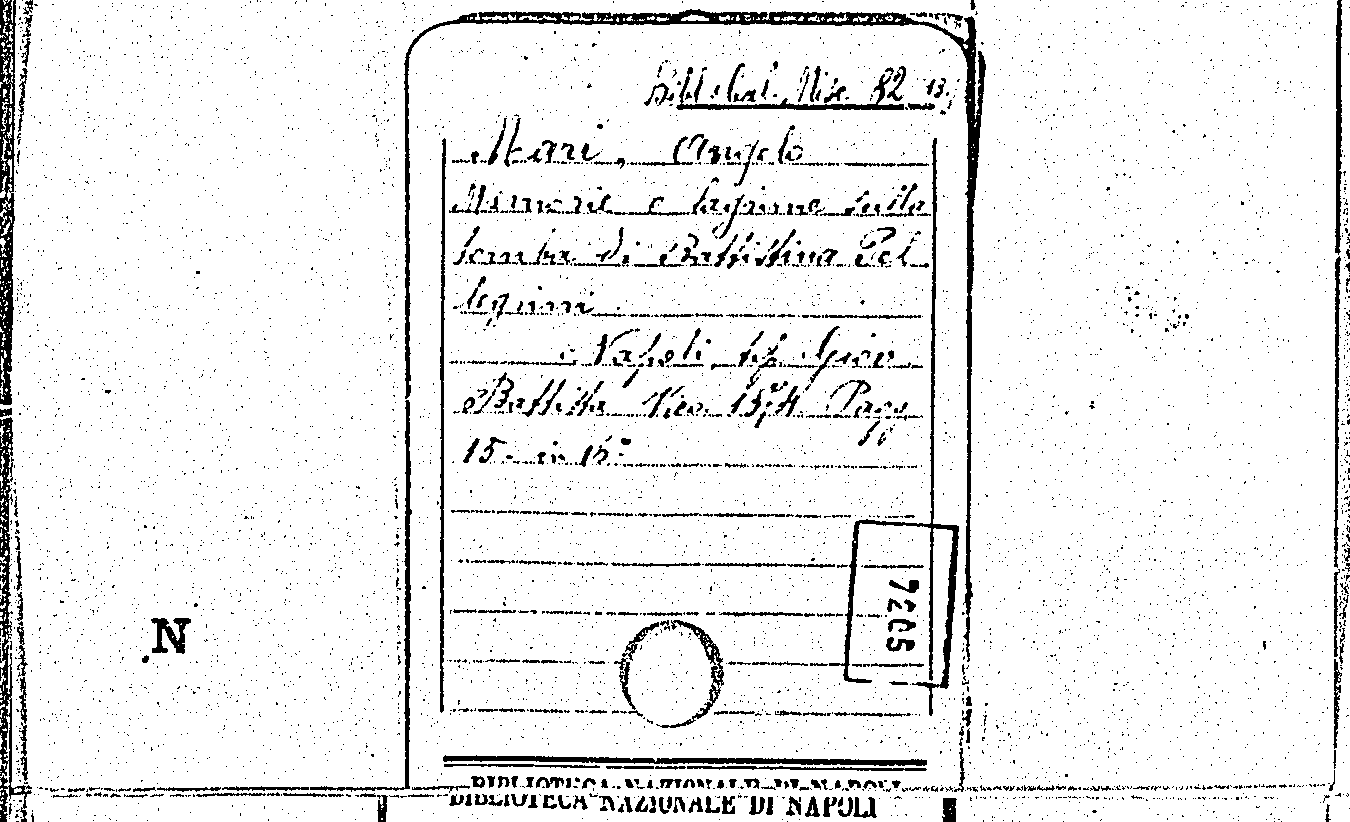 Misc. 82
Mari, Angelo
Memorie e lagrime sulla
tomba di Battistina Pel
legrini
Napoli, tip. Giov.
Battista Vico Pagg
15- in 16°
7205
N
BIBLIOTECA NAZIONALE DI NAPOLI
BIBLIOTECA NAZIONALE DI NAPOLI